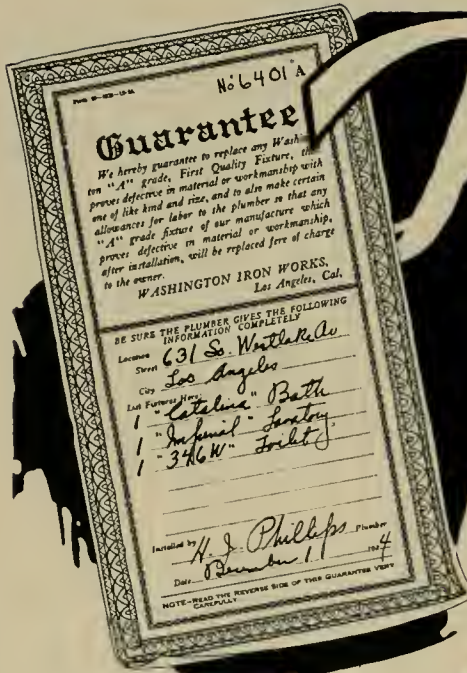 No 6401 A
Guarantee
We hereby guarantee to replace any Washing
ton "A" grade, First Quality Fixture, that
proves defective in material or workmanship with
one of like kind and size, and to also make certain
allowances for labor to the plumber so that any
"A" grade fixture of our manufacture which
proves defective in material or workmanship,
after installation, will be replaced fere of charge
to the owner.
WASHINGTON IRON WORKS,
Los Angeles, Cal.
BE SURE THE PLUMBER GIVES THE FOLLOWING
INFORMATION COMPLETELY
Location
Street 631 So. Westlake Av
City Los Angeles
List Fixtures Here:
1 "Catalina" Bath
1 "Imperial" Lavatory
1 "346W" Toilet
Installed by H. J. Phillips Plumber
Date December 1 1924
NOTE—READ THE REVERSE SIDE OF THIS GUARANTEE VERY
CAREFULLY